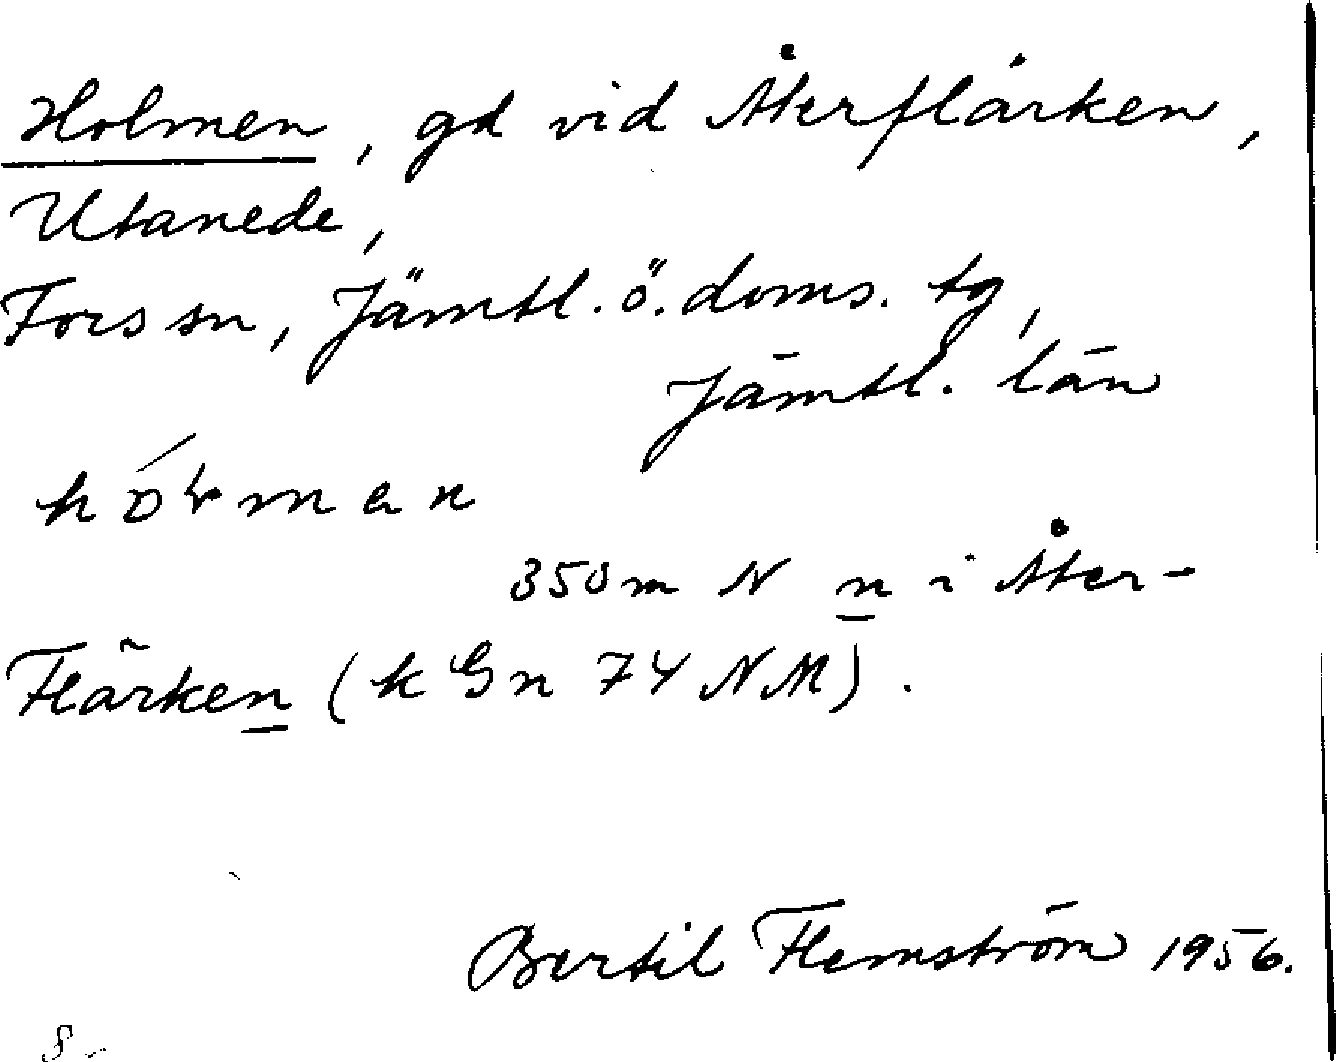 Holmen, gd vid Återflärken,
Utanede,
Fors sn, Jämtl. ö. doms. tg,
Jämtl. län
350 m N n i Åter-
Flärken (k Gn 74 NM).
Bertil Flemström 1956.